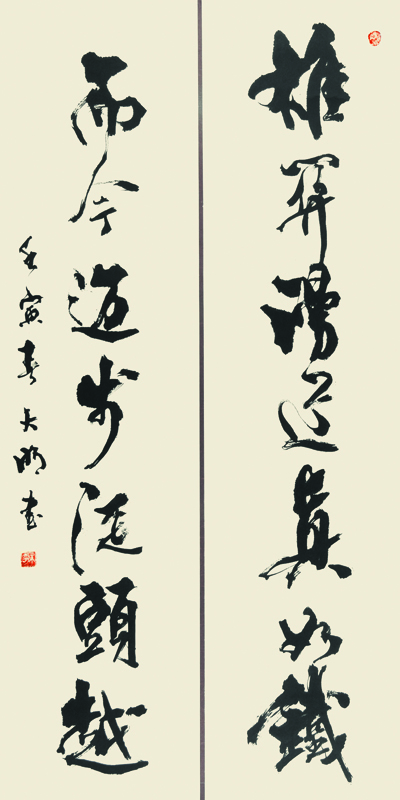 雄關漫道真如鐵
而今邁步從頭越
壬寅春大明書